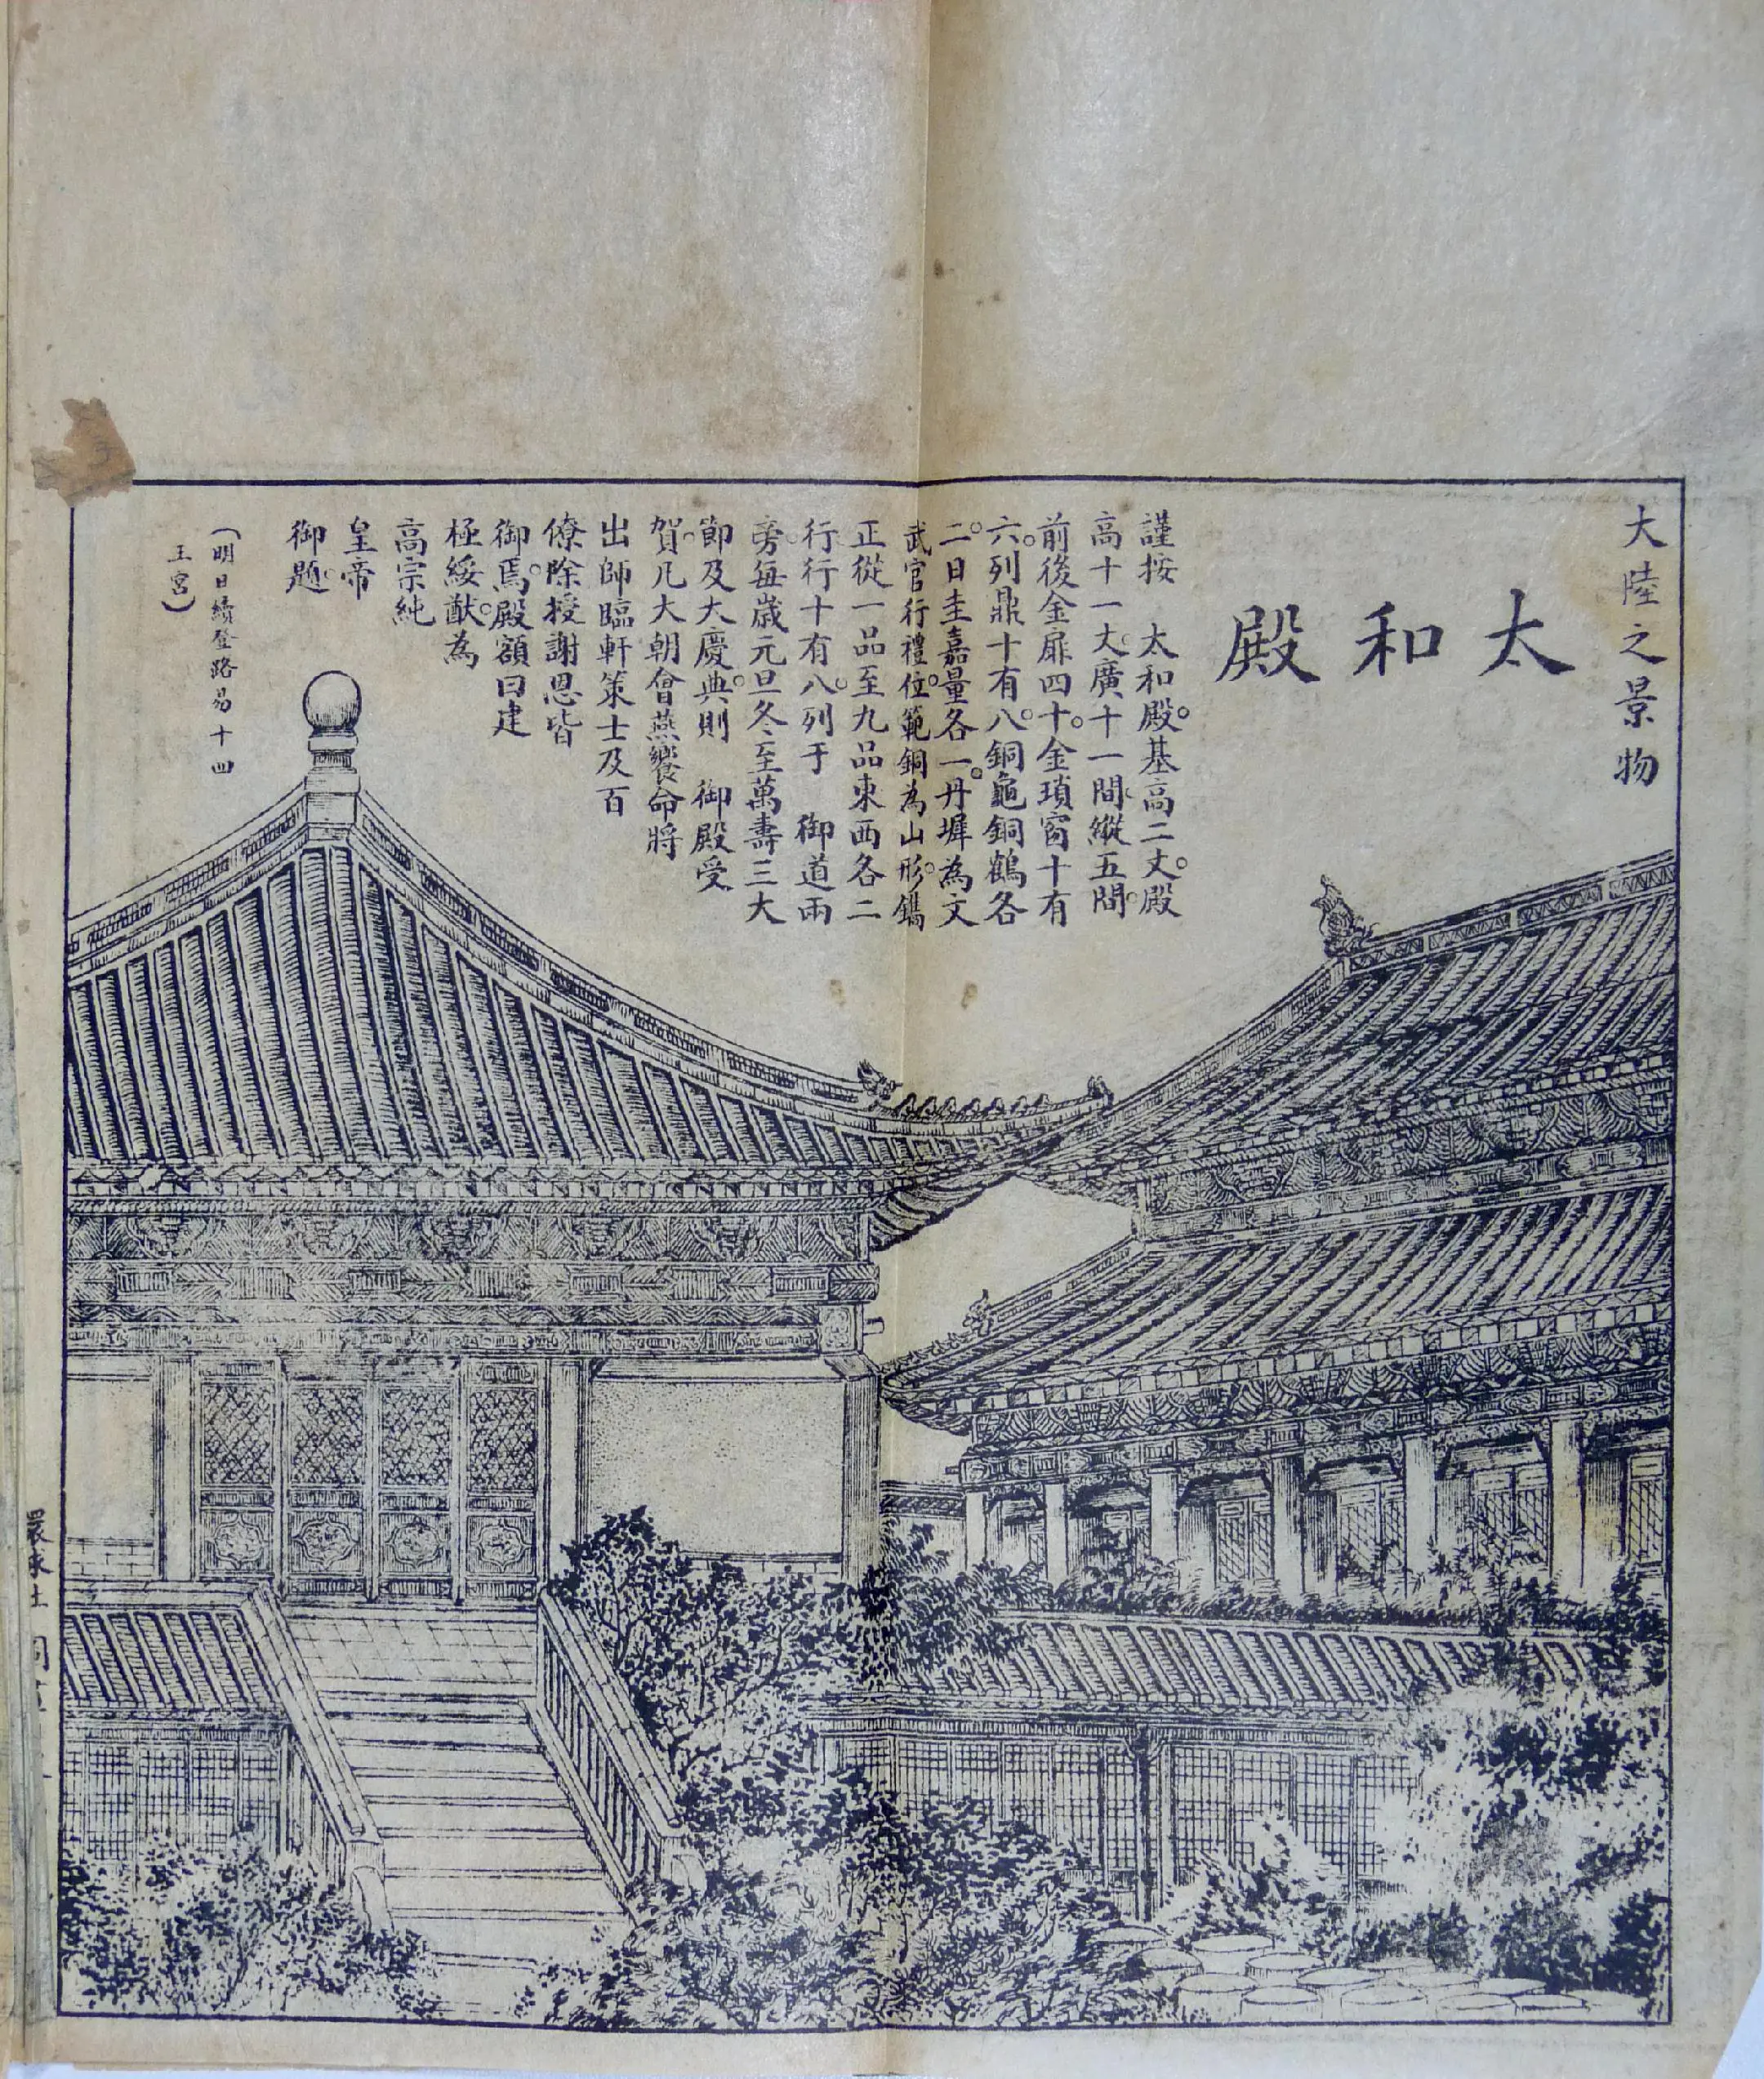 大陸之景物
太和殿
謹按　太和殿。基高二丈。殿
高十一丈。廣十一間。縱五間。
前後金扉四十。金瑣窗十有
六。列鼎十有八。銅龜銅鶴各
二。日圭嘉量各一。丹墀為文
武官行禮位。範銅為山形。鐫
正從一品至九品東西各二
行。行十有八。列于　御道兩
旁。每歲元旦冬至萬壽三大
節及大慶典。則　御殿受
賀。凡大朝會燕饗命將
出師臨軒策士及百
僚除授謝恩皆
御焉。殿額曰建
極綏猷。為
高宗純
皇帝
御題。
（明日續登路易十四
王宮）
環球社